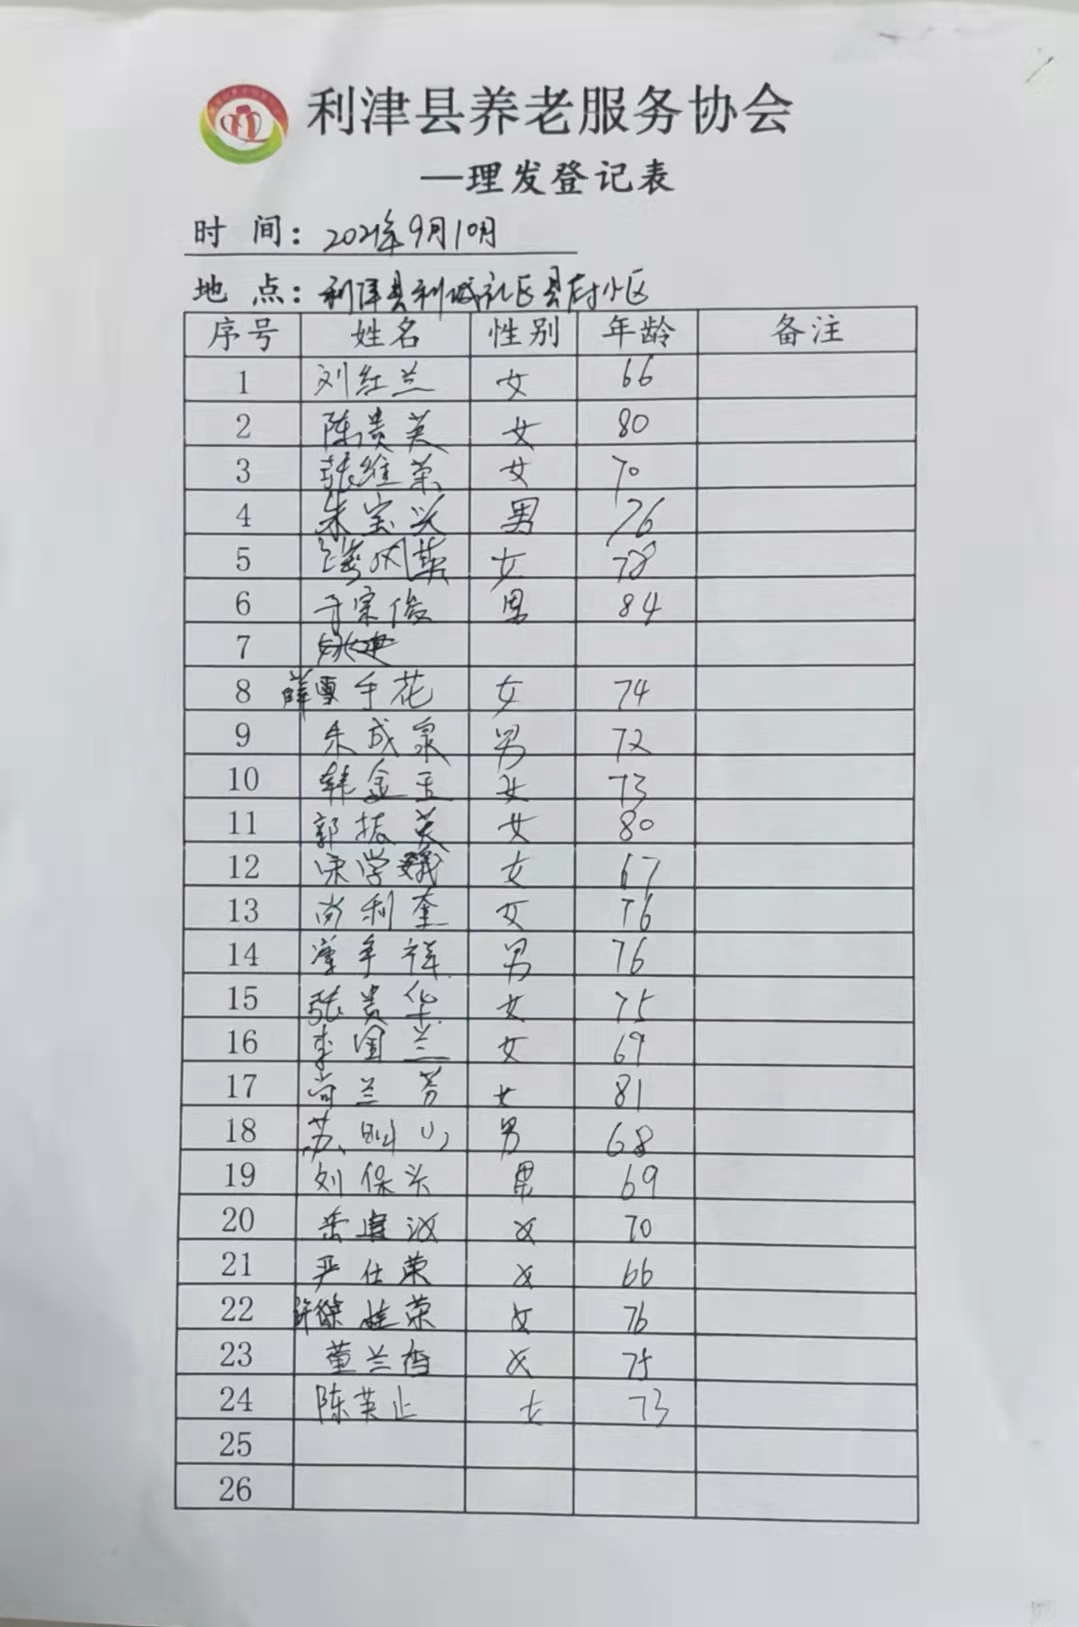 利津县养老服务协会
—理发登记表
时 间：2021年9月10日
地 点：利津县利城社区县府小区
序号 姓名 性别 年龄 备注
1 刘红兰 女 66
2 陈贵英 女 80
3 张维荣 女 70
4 朱宝兴 男 76
5 风英 女 78
6 于宗俊 男 84
7
8 薛手花 女 74
9 朱成泉 男 72
10 韩金玉 女 73
11 郭振英 女 80
12 宋学娥 女 67
13 尚利奎 女 76
14 祥 男 76
15 张贵华 女 75
16 李国兰 女 69
17 尚兰芳 女 81
18 苏 男 68
19 刘保头 男 69
20 岳 女 70
21 严仕荣 女 66
22 许桂荣 女 76
23 董兰香 女 75
24 陈英 女 73
25
26